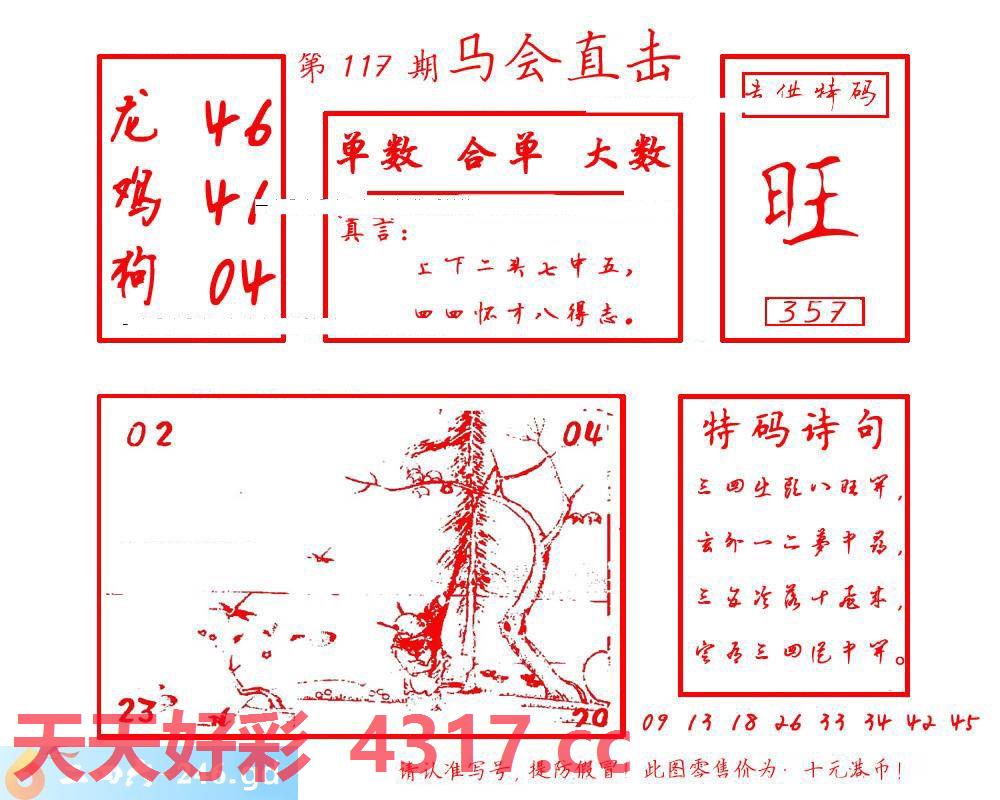 第 117 期 马会直击
龙 46
鸡 41
狗 04
单数 合单 大数
真言:
上下二头七中五,
四四怀才八得志。
特码
旺
357
02 04
23 20
特码诗句
三四生 八旺
玄外一二夢中尋,
三 冷落十 来,
三四 中
09 13 18 26 33 34 42 45
天天好彩 4317.cc
246.gd
请认准写号, 提防假冒! 此图零售价为· 十元港币!